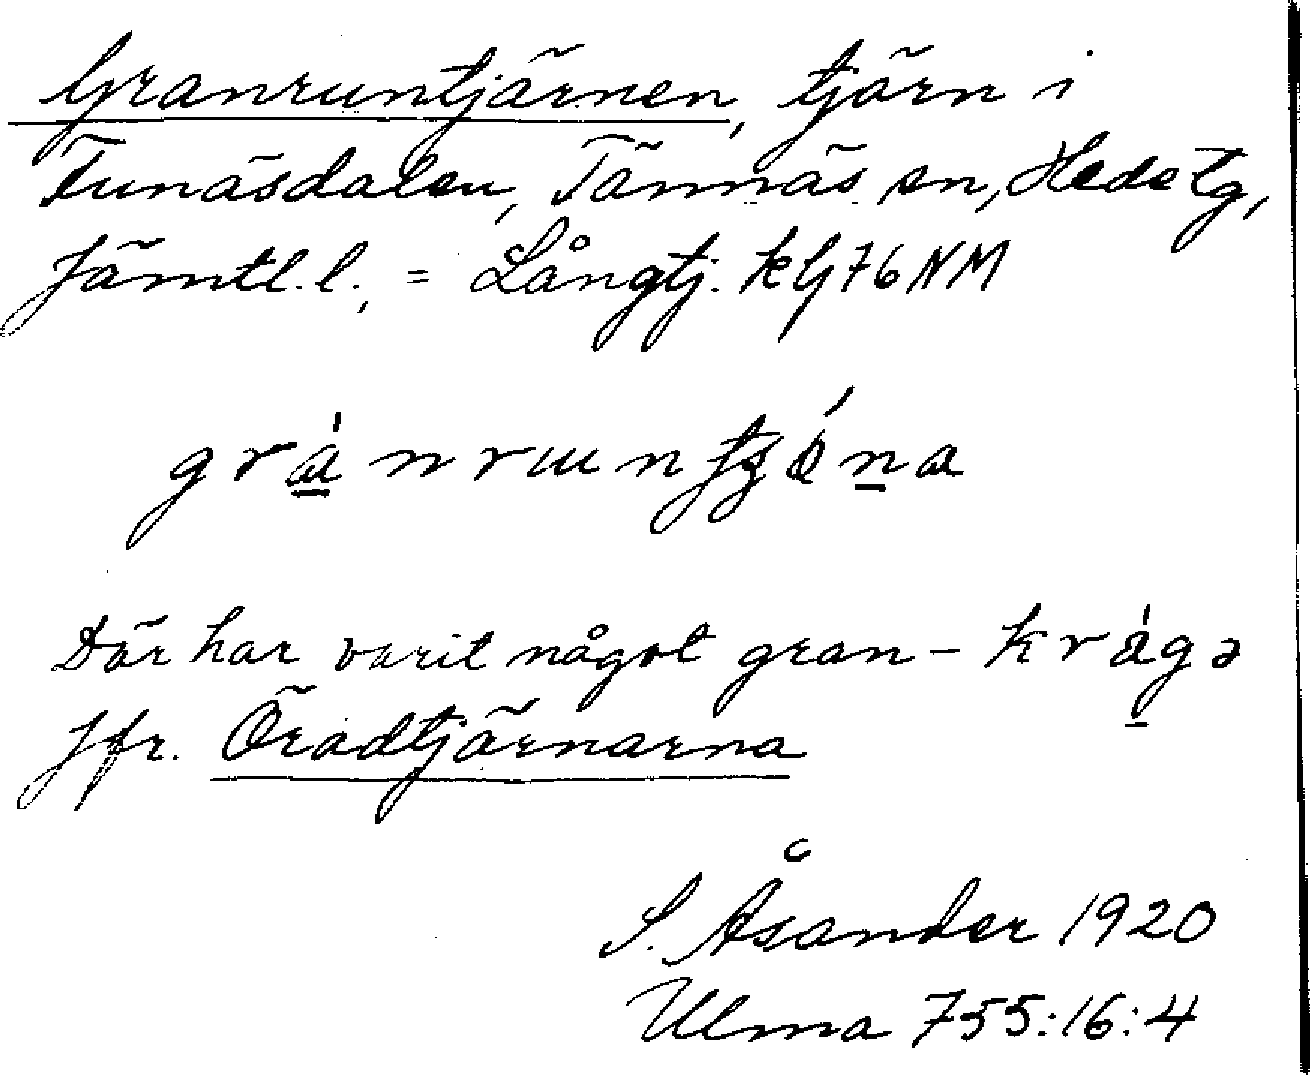 Granruntjärnen, tjärn i
Funäsdalen, Tännäs sn, Hede tg,
Jämtl.l., = Långtj. kG76NM
grànrɯnʈʂǿn̲a
Där har varit något gran-kràgə
Jfr. Öradtjärnarna
S. Åsander 1920
Ulma 755:16:4